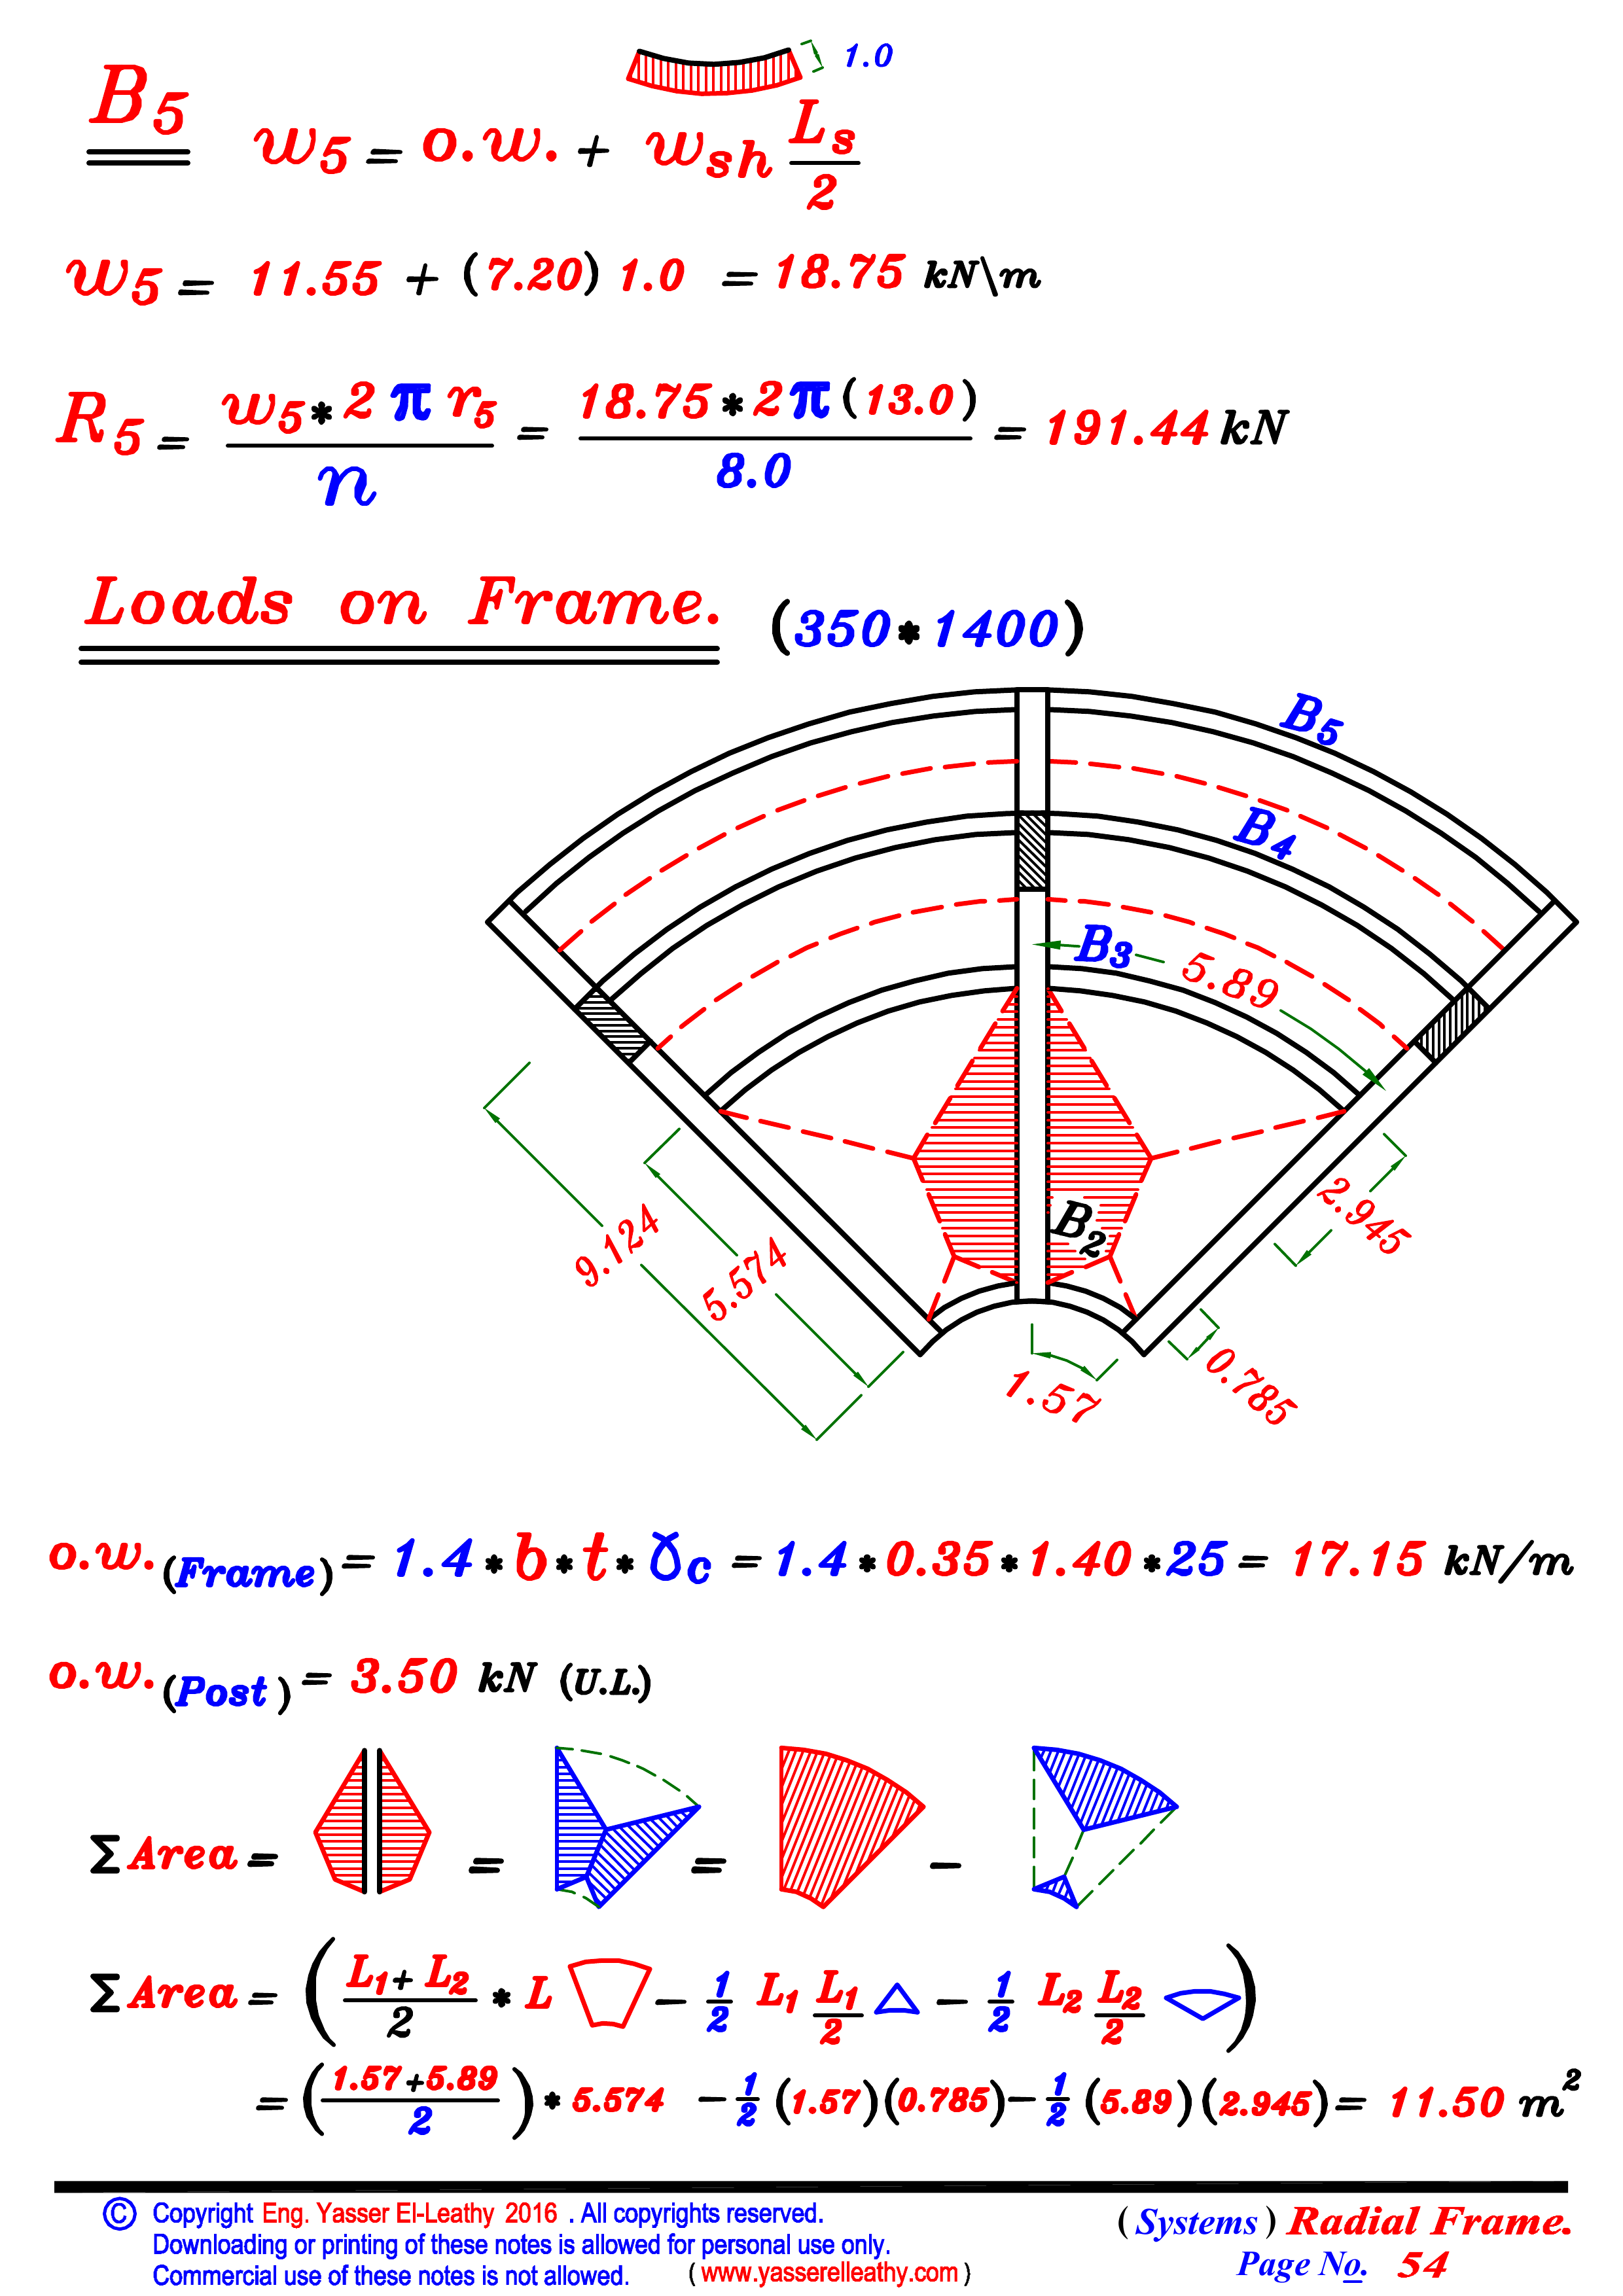 1.0
B5 w5 = o.w. + wsh Ls/2
w5 = 11.55 + (7.20) 1.0 = 18.75 kN\m
R5 = w5 * 2 π r5 / n = 18.75 * 2 π (13.0) / 8.0 = 191.44 kN
Loads on Frame. (350 * 1400)
B5
B4
B3
5.89
B2
2.945
9.124
5.574
0.785
1.57
o.w.(Frame) = 1.4 * b * t * γc = 1.4 * 0.35 * 1.40 * 25 = 17.15 kN/m
o.w.(Post) = 3.50 kN (U.L.)
Σ Area = = = −
Σ Area = ( L1 + L2 / 2 * L − 1/2 L1 L1/2 − 1/2 L2 L2/2 )
= ( 1.57 + 5.89 / 2 ) * 5.574 − 1/2 (1.57)(0.785) − 1/2 (5.89)(2.945) = 11.50 m²
© Copyright Eng. Yasser El-Leathy 2016 . All copyrights reserved.
Downloading or printing of these notes is allowed for personal use only.
Commercial use of these notes is not allowed. ( www.yasserelleathy.com )
( Systems ) Radial Frame.
Page No. 54